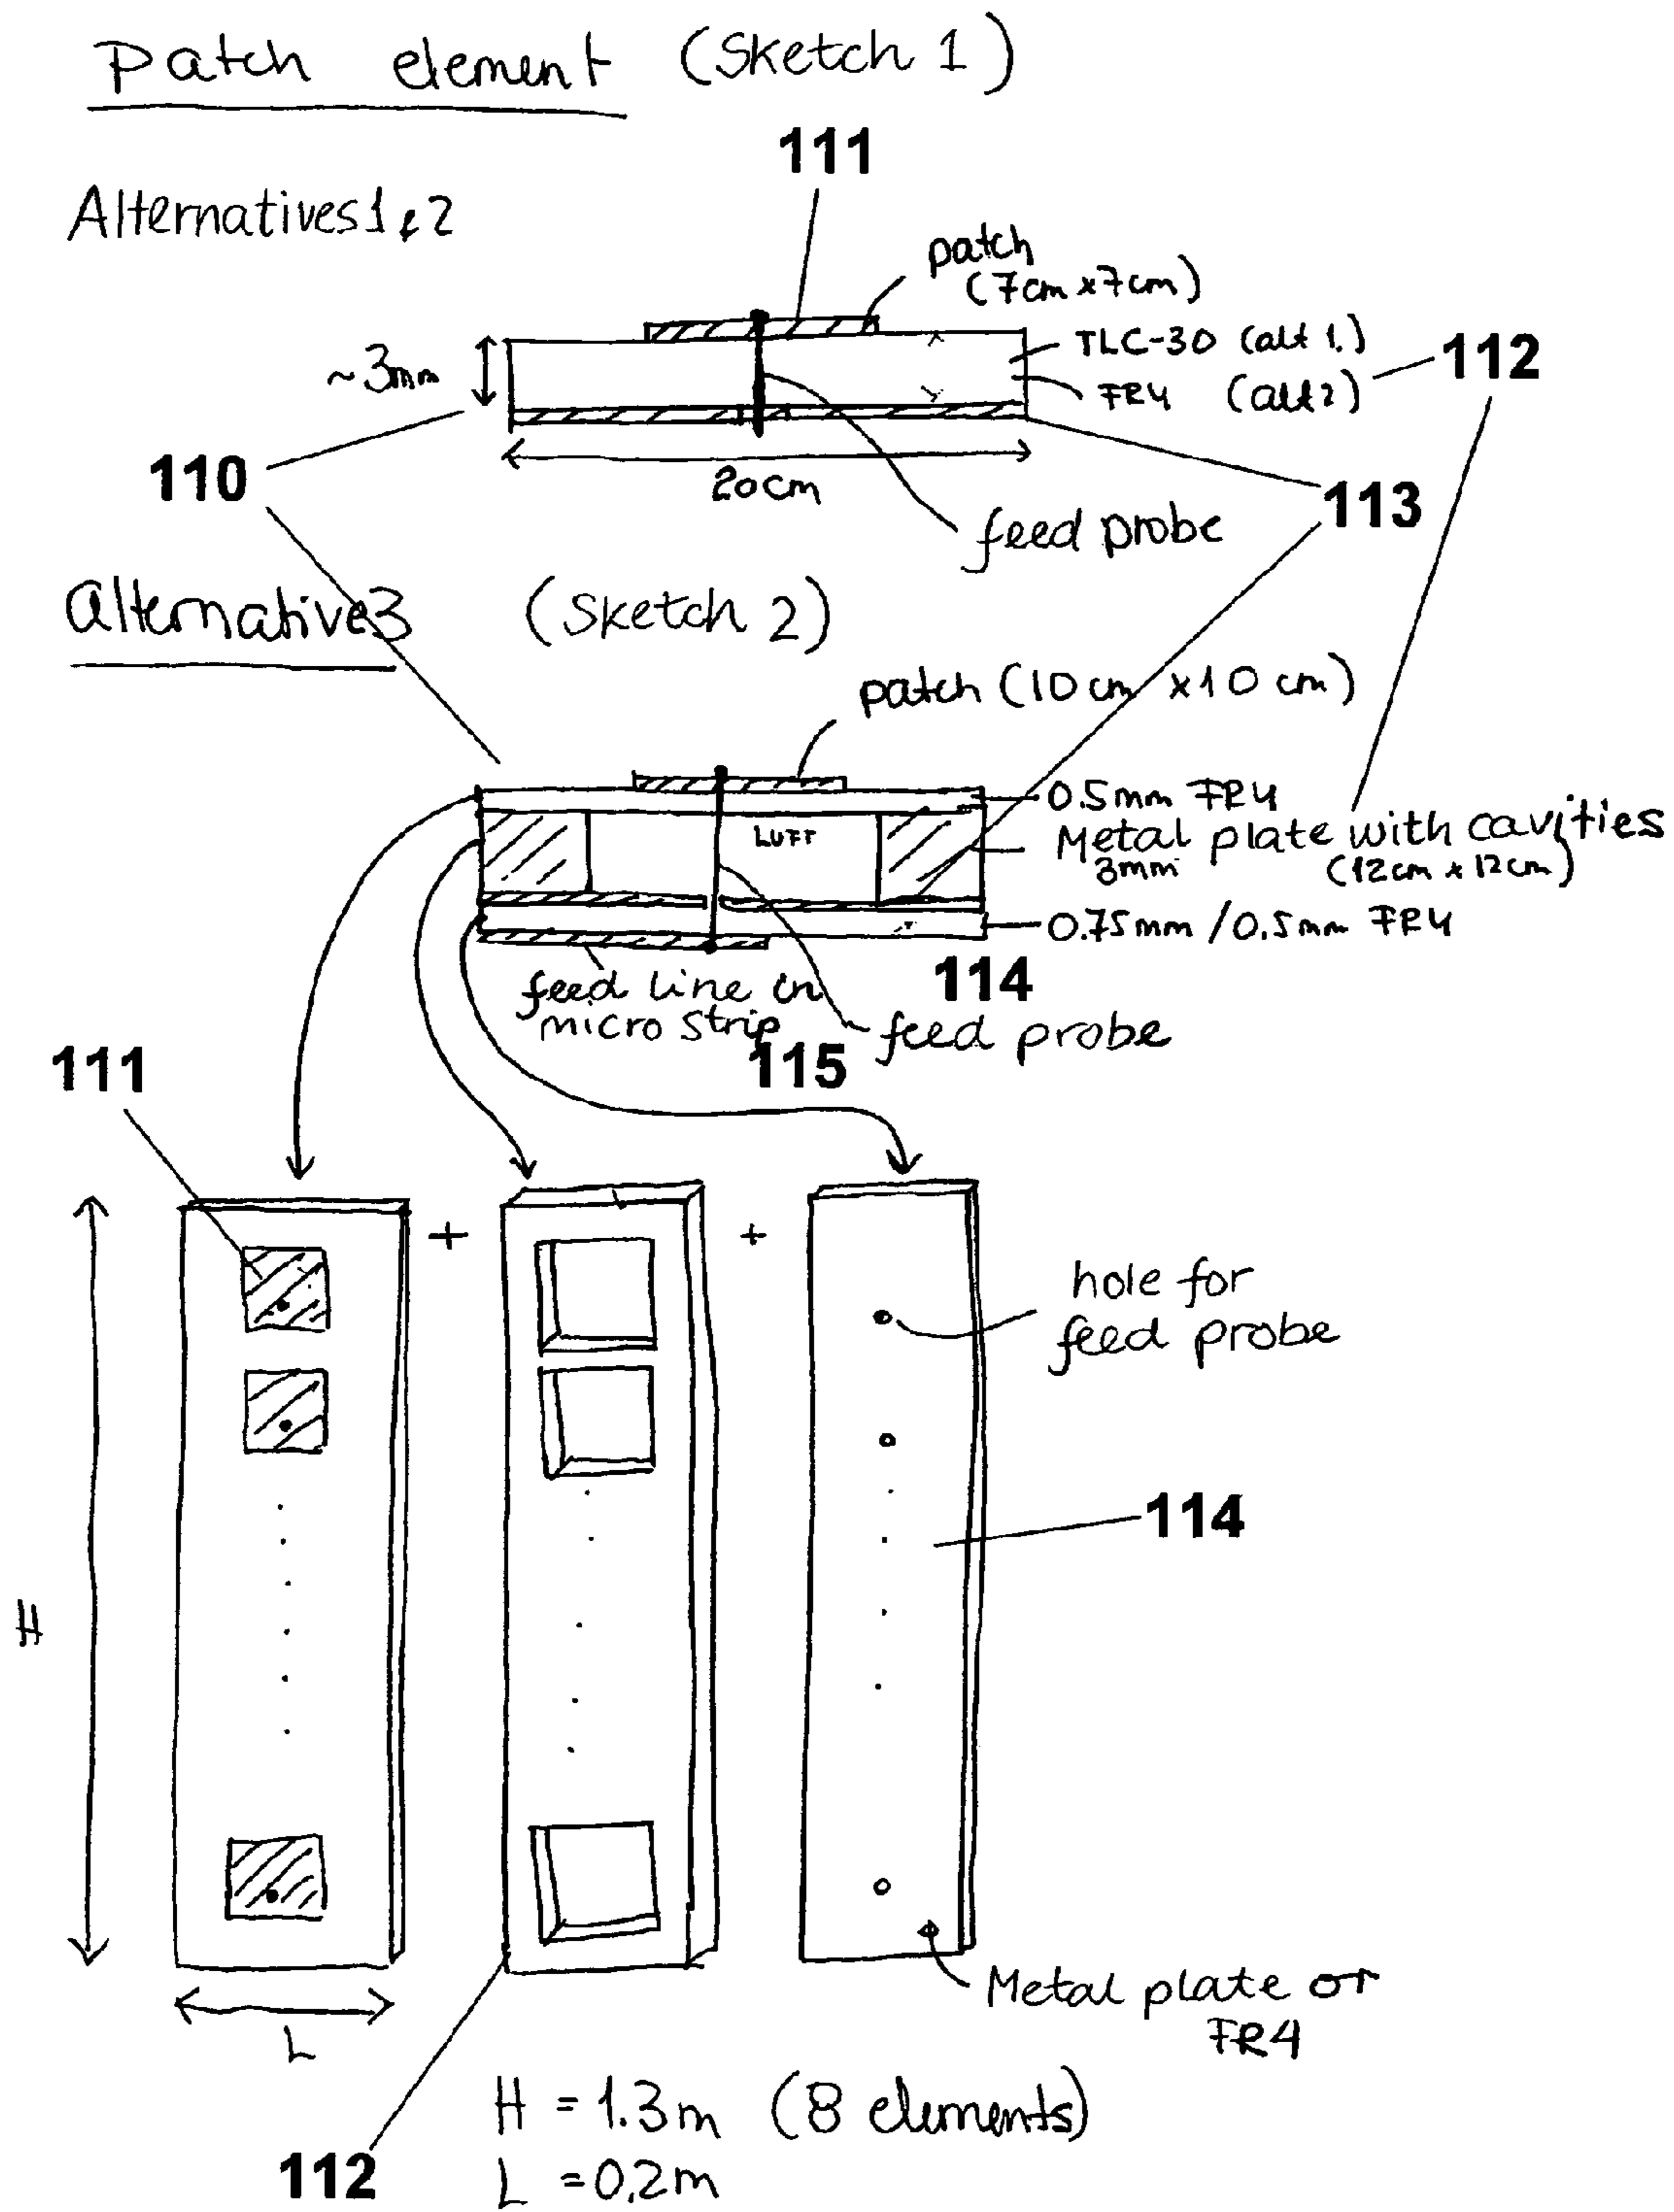 Patch element (Sketch 1)
111
Alternatives 1 & 2
patch
(7cm x 7cm)
~3mm
TLC-30 (alt 1.)
FR4 (alt 2)
112
110
20cm
113
feed probe
Alternative 3 (Sketch 2)
patch (10 cm x 10 cm)
0.5mm FR4
LUFT
Metal plate with cavities
3mm (12cm x 12cm)
0.75mm / 0.5mm FR4
feed line in
micro strip
114
feed probe
115
111
+ +
hole for
feed probe
114
H
Metal plate or
FR4
L
H = 1.3m (8 elements)
112
L = 0,2m